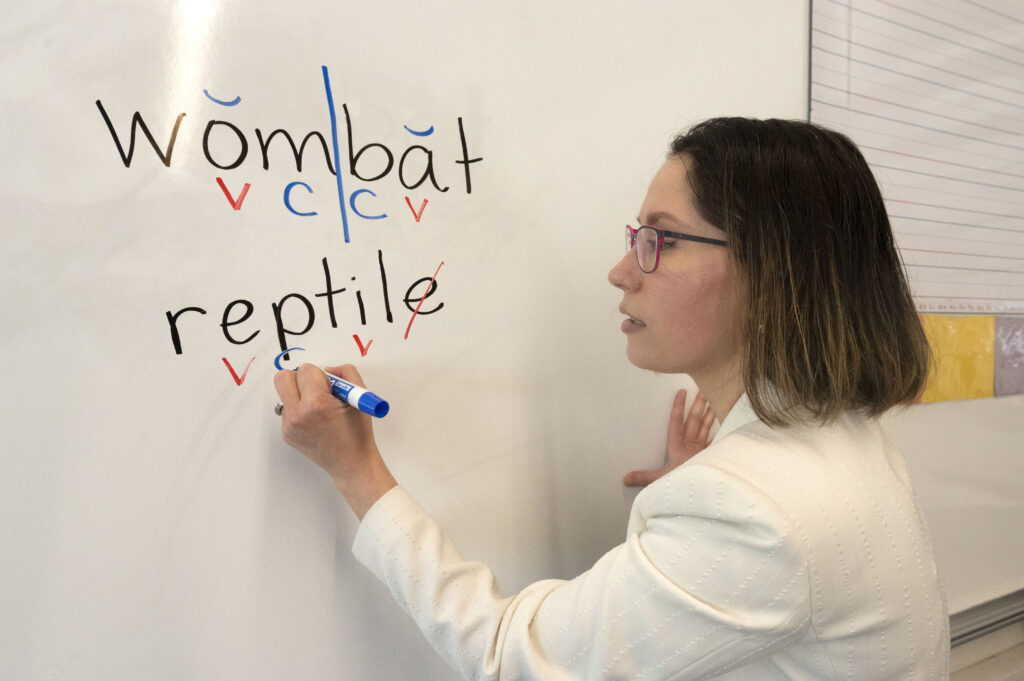 wŏm|băt
v c c v
reptile
v c v